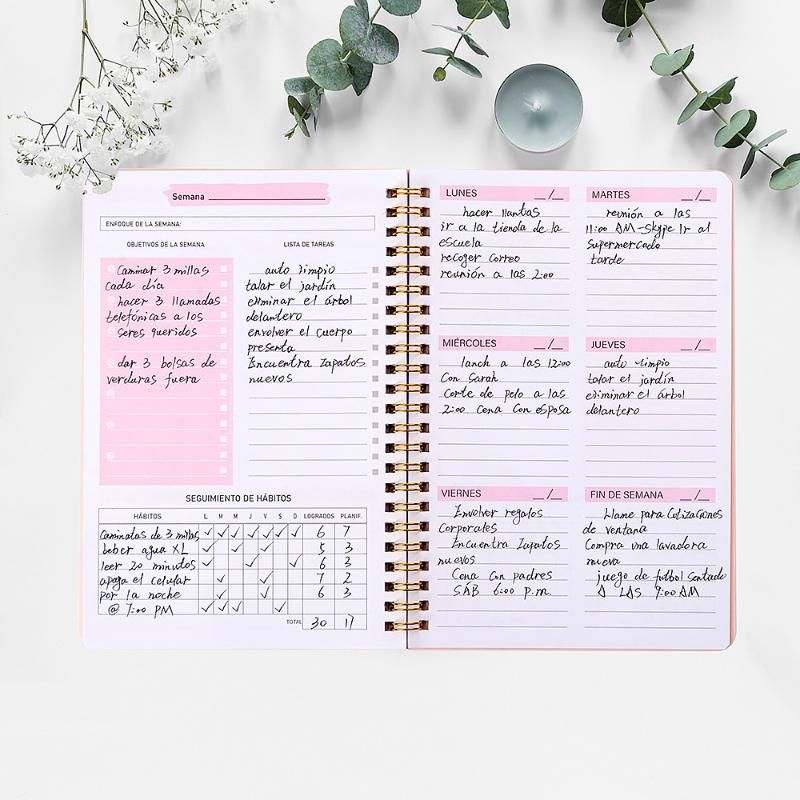 Semana
ENFOQUE DE LA SEMANA:
OBJETIVOS DE LA SEMANA
LISTA DE TAREAS
caminar 3 millas
cada día
hacer 3 llamadas
telefónicas a los
seres queridos
dar 3 bolsas de
verduras fuera
auto limpio
talar el jardín
eliminar el árbol
delantero
envolver el cuerpo
presenta
Encuentra zapatos
nuevos
SEGUIMIENTO DE HÁBITOS
HÁBITOS L M M J V S D LOGRADOS PLANIF.
caminatas de 3 millas 6 7
beber agua XL 5 3
leer 20 minutos 6 3
apaga el celular 7 2
por la noche 6 3
@ 7:00 PM
TOTAL 30 17
LUNES __/__
hacer llantas
ir a la tienda de la
escuela
recoger correo
reunión a las 2:00
MARTES __/__
reunión a las
11:00 AM-skype Ir al
supermercado
tarde
MIÉRCOLES __/__
lanch a las 12:00
Con Sarah
Corte de pelo a las
2:00 Cena Con esposa
JUEVES __/__
auto limpio
talar el jardín
eliminar el árbol
delantero
VIERNES __/__
Envolver regalos
Corporales
Encuentra Zapatos
nuevos
Cena con padres
SÁB 6:00 p.m.
FIN DE SEMANA __/__
Llame para Cotizaciones
de ventana
Compra una lavadora
nueva
juego de futbol sentado
A LAS 9:00 AM